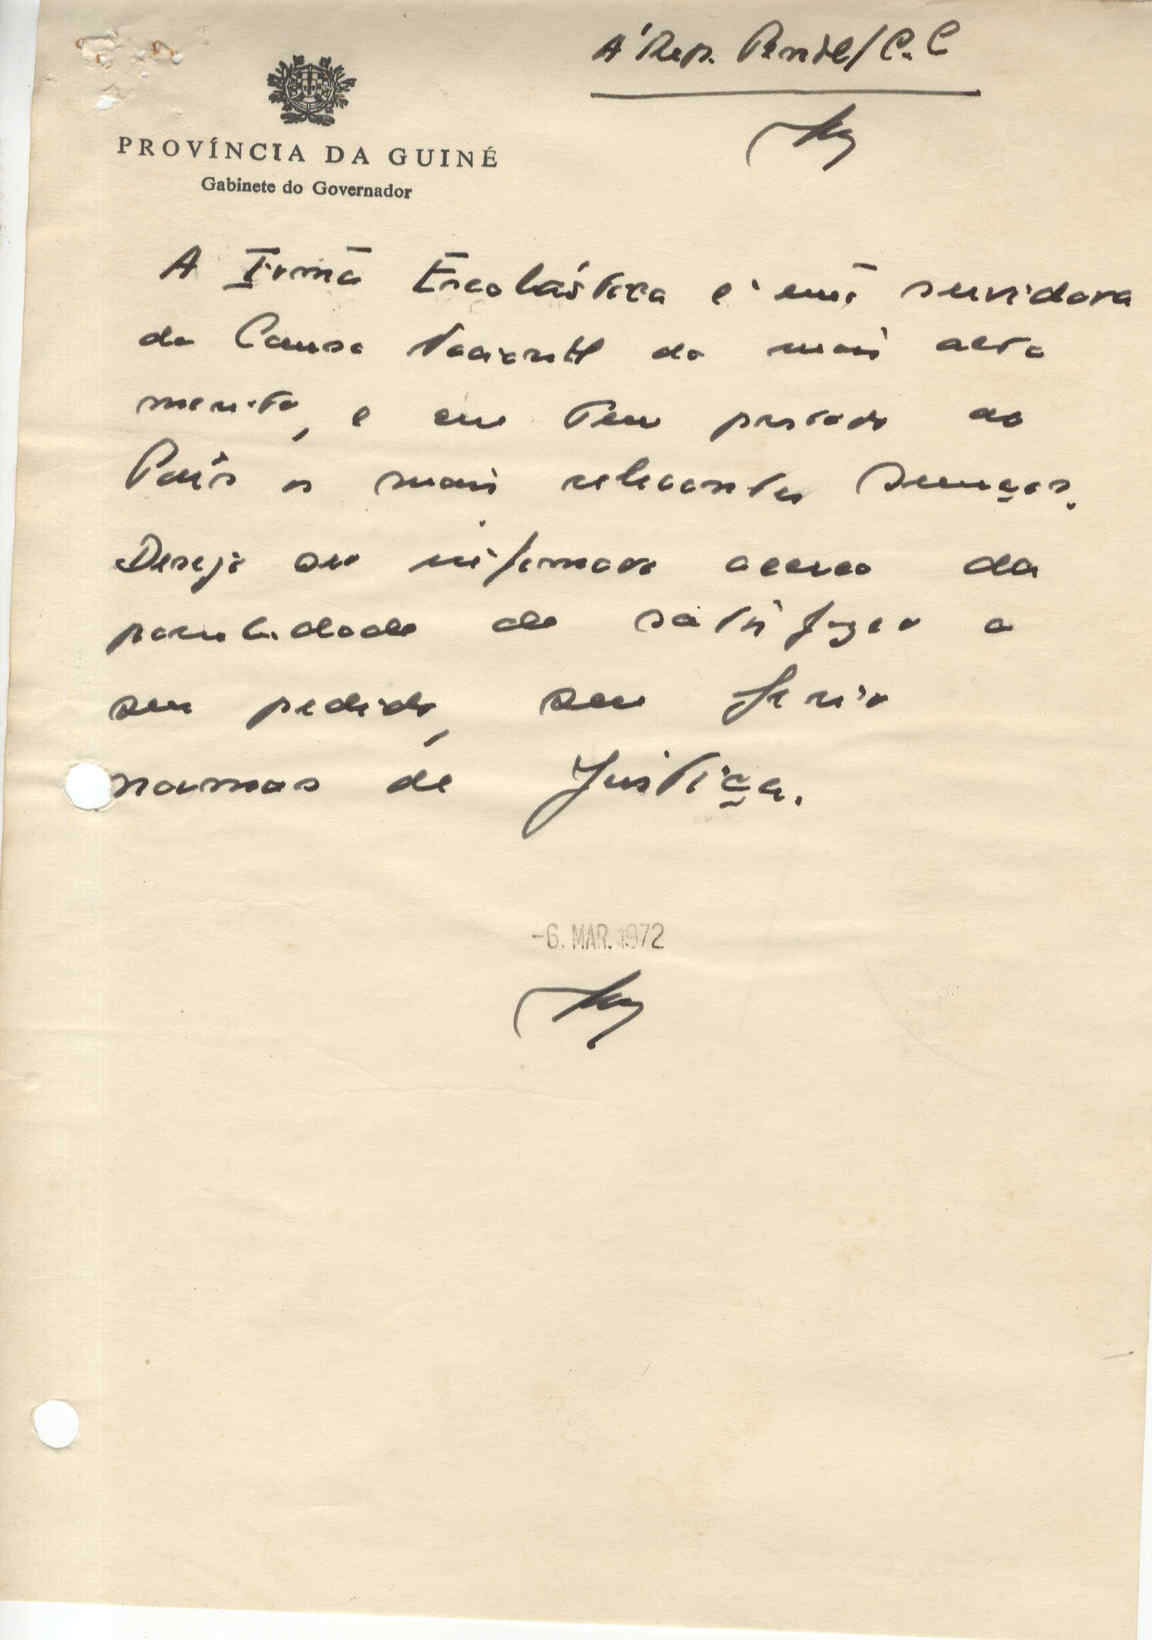 À Rep. /C.C
PROVÍNCIA DA GUINÉ
Gabinete do Governador
A Irmã Escolástica é uma servidora
da Causa Nacional do mais alto
merito, e tem prestado ao
País os mais relevantes serviços.
Desejo ser informado acerca da
possibilidade de satisfazer o
seu pedido, sem ferir
normas de Justiça.
-6. MAR. 1972